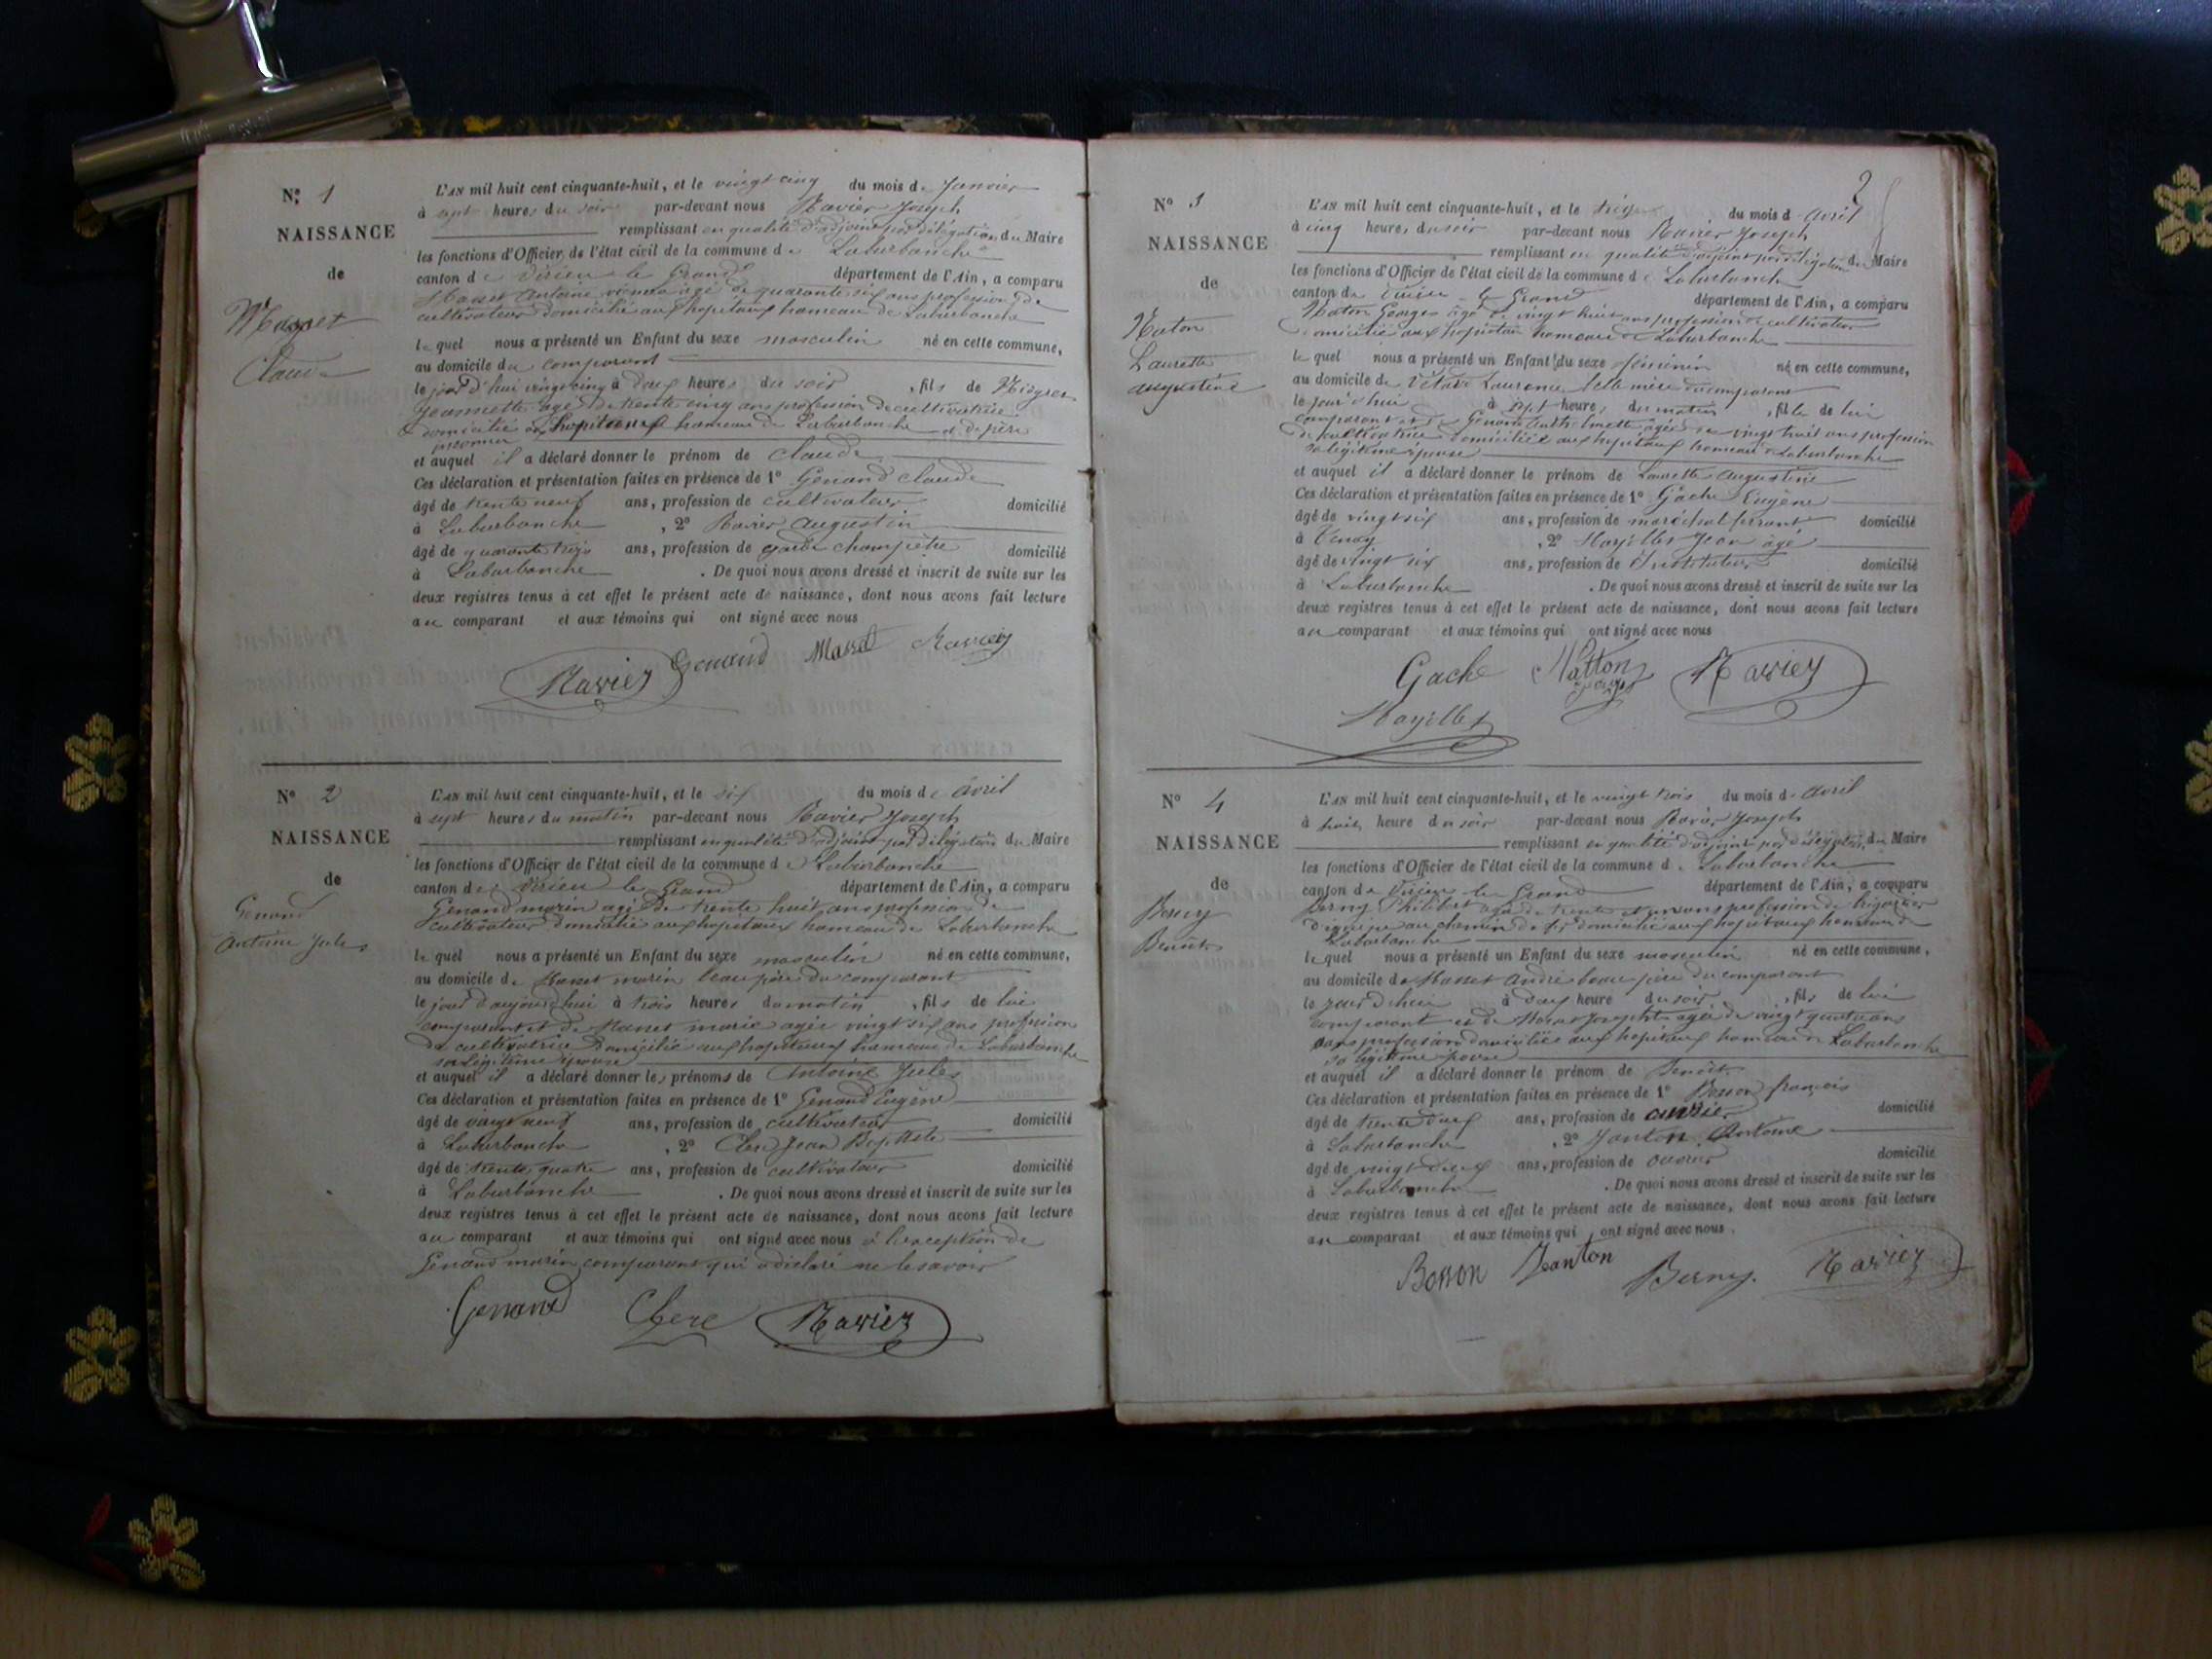 Nº 1
NAISSANCE
de
Masset
Claude
L'AN mil huit cent cinquante-huit, et le vingt cinq du mois de Janvier
à sept heures du soir par-devant nous Ravier Joseph
remplissant en qualité d'adjoint par délégation du Maire
les fonctions d'Officier de l'état civil de la commune de Laburbanche
canton de Virieu le Grand département de l'Ain, a comparu
Masset Antoine âgé de quarante six ans profession de
cultivateur domicilié aux hopitaux hameau de Laburbanche
lequel nous a présenté un Enfant du sexe masculin né en cette commune,
au domicile du comparant
le jour d'hui vingt cinq à deux heures du soir, fils de
Jeannette agée de trente cinq ans profession de cultivatrice
domiciliée aux hopitaux hameau de Laburbanche et de père
inconnu
et auquel il a déclaré donner le prénom de Claude
Ces déclaration et présentation faites en présence de 1º Genand Claude
âgé de trente neuf ans, profession de cultivateur domicilié
à Laburbanche, 2º Ravier Augustin
âgé de quarante trois ans, profession de garde champêtre domicilié
à Laburbanche. De quoi nous avons dressé et inscrit de suite sur les
deux registres tenus à cet effet le présent acte de naissance, dont nous avons fait lecture
au comparant et aux témoins qui ont signé avec nous
Ravier Genand Masset Ravier
Nº 2
NAISSANCE
de
Genand
Antoine Jules
L'AN mil huit cent cinquante-huit, et le six du mois de Avril
à sept heures du matin par-devant nous Ravier Joseph
remplissant en qualité d'adjoint par délégation du Maire
les fonctions d'Officier de l'état civil de la commune de Laburbanche
canton de Virieu le Grand département de l'Ain, a comparu
Genand marin agé de trente huit ans profession de
cultivateur domicilié aux hopitaux hameau de Laburbanche
lequel nous a présenté un Enfant du sexe masculin né en cette commune,
au domicile de Masset marin beau père du comparant
le jour d'aujourd'hui à trois heures du matin, fils de lui
comparant et de Masset marie agée vingt six ans profession
de cultivatrice domiciliée aux hopitaux hameau de Laburbanche
sa légitime épouse
et auquel il a déclaré donner les prénoms de Antoine Jules
Ces déclaration et présentation faites en présence de 1º Genand Eugène
âgé de vingt neuf ans, profession de cultivateur domicilié
à Laburbanche, 2º Jean Baptiste
âgé de trente quatre ans, profession de cultivateur domicilié
à Laburbanche. De quoi nous avons dressé et inscrit de suite sur les
deux registres tenus à cet effet le présent acte de naissance, dont nous avons fait lecture
au comparant et aux témoins qui ont signé avec nous à l'exception de
Genand marin comparant qui a déclaré ne le savoir
Genand Chere Ravier
2
Nº 3
NAISSANCE
de
Naton
Laurette
augustine
L'AN mil huit cent cinquante-huit, et le treize du mois d'Avril
à cinq heures du soir par-devant nous Ravier Joseph
remplissant en qualité d'adjoint par délégation du Maire
les fonctions d'Officier de l'état civil de la commune de Laburbanche
canton de Virieu le Grand département de l'Ain, a comparu
Naton Georges âgé de vingt huit ans profession de cultivateur
domicilié aux hopitaux hameau de Laburbanche
lequel nous a présenté un Enfant du sexe féminin né en cette commune,
au domicile de Laurence belle mère du comparant
le jour d'hui à sept heures du matin, fille de lui
comparant et de Genand agée de vingt huit ans profession
de cultivatrice domiciliée aux hopitaux hameau de Laburbanche
sa légitime épouse
et auquel il a déclaré donner le prénom de Laurette Augustine
Ces déclaration et présentation faites en présence de 1º Gache Eugène
âgé de vingt six ans, profession de maréchal ferrant domicilié
à Tenay, 2º Jean âgé
âgé de vingt six ans, profession de Instituteur domicilié
à Laburbanche. De quoi nous avons dressé et inscrit de suite sur les
deux registres tenus à cet effet le présent acte de naissance, dont nous avons fait lecture
au comparant et aux témoins qui ont signé avec nous
Gache Natton Ravier
Nº 4
NAISSANCE
de
Berny
Benoît
L'AN mil huit cent cinquante-huit, et le vingt trois du mois d'Avril
à huit heure du soir par-devant nous Ravier Joseph
remplissant en qualité d'adjoint par délégation du Maire
les fonctions d'Officier de l'état civil de la commune de Laburbanche
canton de Virieu le Grand département de l'Ain, a comparu
Berny Philibert agé de trente et un ans profession de brigadier
d'équipe au chemin de fer domicilié aux hopitaux hameau de
Laburbanche
lequel nous a présenté un Enfant du sexe masculin né en cette commune,
au domicile de Masset André beau père du comparant
le jour d'hui à deux heure du soir, fils de lui
comparant et de Masset Josephte agée de vingt quatre ans
sans profession domiciliée aux hopitaux hameau de Laburbanche
sa légitime épouse
et auquel il a déclaré donner le prénom de Benoît
Ces déclaration et présentation faites en présence de 1º Bosson françois
âgé de trente deux ans, profession de ouvrier domicilié
à Laburbanche, 2º Janton Antoine
âgé de vingt deux ans, profession de ouvrier domicilié
à Laburbanche. De quoi nous avons dressé et inscrit de suite sur les
deux registres tenus à cet effet le présent acte de naissance, dont nous avons fait lecture
au comparant et aux témoins qui ont signé avec nous.
Bosson Janton Berny Ravier